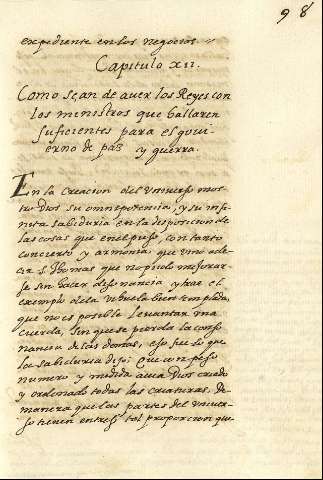 98
expediente en los negocios.
Capitulo XII.
Como sean de auer los Reyes con
los ministros que hallaren
suficientes para el goui-
erno de paz y guerra.
En la creacion del vniuerso mos-
tro Dios su omnipotencia, y su infi-
nita sabiduria en la disposicion de
las cosas que en el puso, con tanto
concierto y armonia, que vino a de-
cir S. Thomas que no pudo mejorar-
se sin hacer disonancia, y trae el
exemplo de la vihuela bien templada,
que no es posible leuantar vna
cuerda, sin que se pierda la conso-
nancia de las demas, eso fue lo que
la sabiduria dijo: Que con peso
numero y medida auia Dios criado
y ordenado todas las criaturas. De
manera que las partes del vniuer-
so tienen entre si tal proporcion que